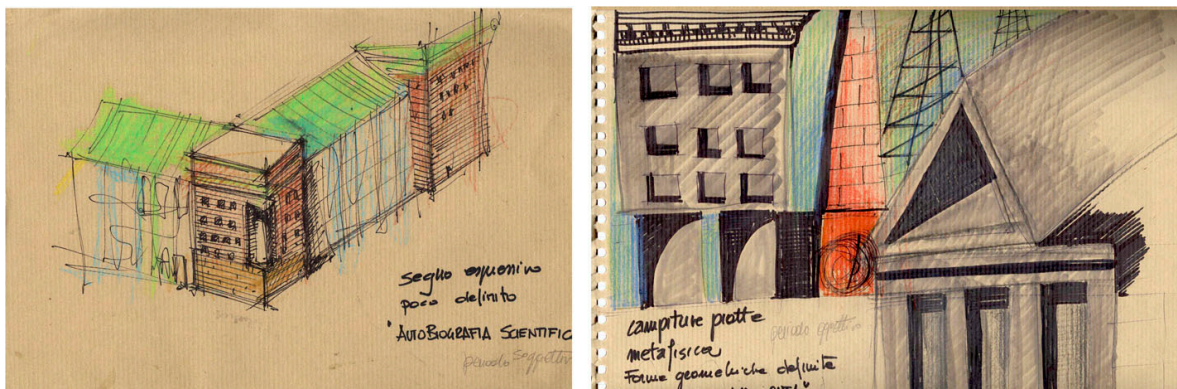 segno espressivo
poco definito
"AUTOBIOGRAFIA SCIENTIFIC
periodo soggettivo
campiture piatte
periodo oggettivo
metafisica
Forme geometriche definite